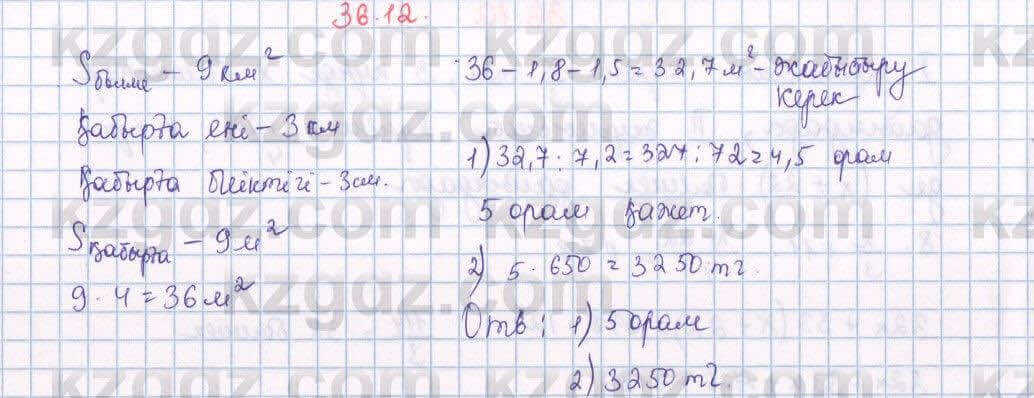 36.12.
Sбөлме – 9 км²
Қабырға ені – 3 км
Қабырға биіктігі – 3 см.
Sқабырға – 9 м²
9 · 4 = 36 м²
36 – 1,8 – 1,5 = 32,7 м² – жабыстыру
керек
1) 32,7 : 7,2 = 327 : 72 = 4,5 орам
5 орам қажет.
2) 5 · 650 = 3250 тг.
Отв: 1) 5 орам
2) 3250 тг.
kzgdz.com